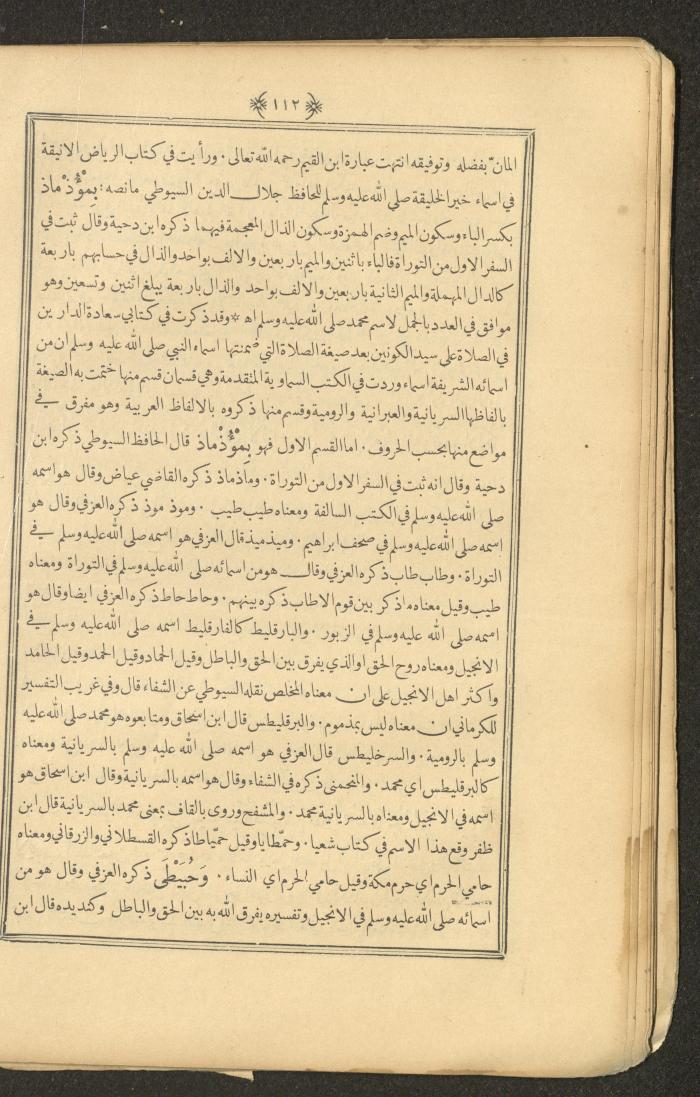 ١١٢
المانّ بفضله وتوفيقه انتهت عبارة ابن القيم رحمه الله تعالى . ورأيت في كتاب الرياض الانيقة
في اسماء خير الخليقة صلى الله عليه وسلم للحافظ جلال الدين السيوطي ما نصه : بِمُؤُذْمَاذ
بكسر الباء وسكون الميم وضم الهمزة وسكون الذال المعجمة فيهما ذكره ابن دحية وقال ثبت في
السفر الاول من التوراة فالباء باثنين والميم باربعين والالف بواحد والذال في حسابهم باربعة
كالدال المهملة والميم الثانية باربعين والالف بواحد والذال باربعة يبلغ اثنين وتسعين وهو
موافق في العدد بالجمل لاسم محمد صلى الله عليه وسلم اه * وقد ذكرت في كتابي سعادة الدارين
في الصلاة على سيد الكونين بعد صيغة الصلاة التي ضمنتها اسماء النبي صلى الله عليه وسلم ان من
اسمائه الشريفة اسماء وردت في الكتب السماوية المتقدمة وهي قسمان قسم منها ختمت به الصيغة
بالفاظها السريانية والعبرانية والرومية وقسم منها ذكروه بالالفاظ العربية وهو مفرق في
مواضع منها بحسب الحروف . اما القسم الاول فهو بِمُؤُذْمَاذ قال الحافظ السيوطي ذكره ابن
دحية وقال انه ثبت في السفر الاول من التوراة . وماذ ماذ ذكره القاضي عياض وقال هو اسمه
صلى الله عليه وسلم في الكتب السالفة ومعناه طيب طيب . وموذ موذ ذكره العزفي وقال هو
اسمه صلى الله عليه وسلم في صحف ابراهيم . وميذ ميذ قال العزفي هو اسمه صلى الله عليه وسلم في
التوراة . وطاب طاب ذكره العزفي وقال هو من اسمائه صلى الله عليه وسلم في التوراة ومعناه
طيب وقيل معناه ما ذكر بين قوم الا طاب ذكره بينهم . وحاط حاط ذكره العزفي ايضا وقال هو
اسمه صلى الله عليه وسلم في الزبور . والبارقليط كالفارقليط اسمه صلى الله عليه وسلم في
الانجيل ومعناه روح الحق او الذي يفرق بين الحق والباطل وقيل الحماد وقيل الحمد وقيل الحامد
واكثر اهل الانجيل على ان معناه المخلص نقله السيوطي عن الشفاء قال وفي غريب التفسير
للكرماني ان معناه ليس بمذموم . والبرقليطس قال ابن اسحاق ومتابعوه هو محمد صلى الله عليه
وسلم بالرومية . والسرخليطس قال العزفي هو اسمه صلى الله عليه وسلم بالسريانية ومعناه
كالبرقليطس اي محمد . والمنحمنى ذكره في الشفاء وقال هو اسمه بالسريانية وقال ابن اسحاق هو
اسمه في الانجيل ومعناه بالسريانية محمد . والمشفح وروى بالقاف بمعنى محمد بالسريانية قال ابن
ظفر وقع هذا الاسم في كتاب شعيا . وحمّطايا وقيل حمّياطا ذكره القسطلاني والزرقاني ومعناه
حامي الحرم اي حرم مكة وقيل حامي الحرم اي النساء . وَحُبَيْطَى ذكره العزفي وقال هو من
اسمائه صلى الله عليه وسلم في الانجيل وتفسيره يفرق الله به بين الحق والباطل وكنديده قال ابن